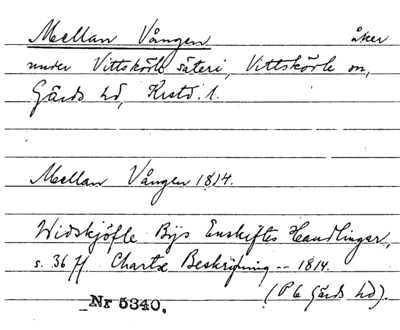 Mellan Vången åker
under Vittskövle säteri, Vittskövle sn,
Gärds hd, Krstd. l.
Mellan Vången 1814.
Widskjöfle Bys Enskiftes Handlingar,
s. 36 ff Charta Beskrifning -- 1814.
(P 6 Gärds hd).
Nr 5340.